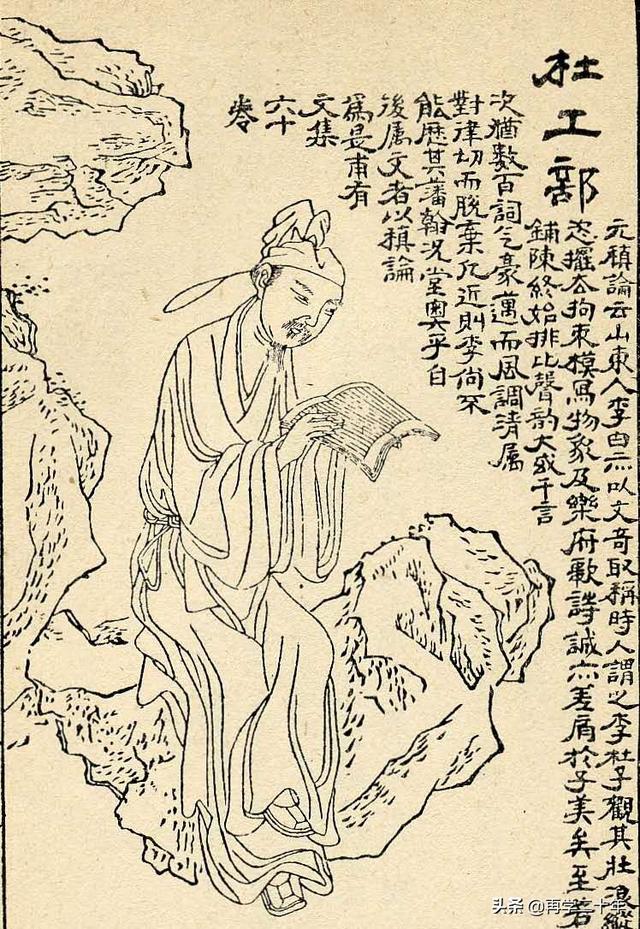 杜工部
元稹論云山東人李白亦以文奇取稱時人謂之李杜予觀其壯浪縱
恣擺去拘束模寫物象及樂府歌詩誠亦差肩於子美矣至若
鋪陳終始排比聲韵大或千言
次猶數百詞气豪邁而風調清屬
對律切而脫棄凡近則李尚不
能歷其藩翰况堂奧乎自
後属文者以稹論
爲是甫有
文集
六十
卷
头条 @再学二十年